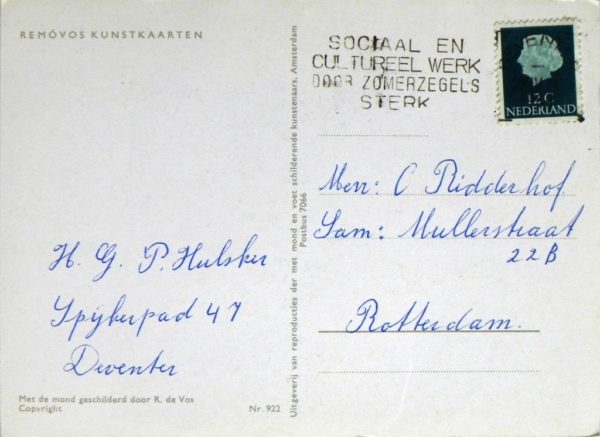 REMÓVOS KUNSTKAARTEN
H. G. P. Hulsker
Spijkerpad 47
Deventer
Met de mond geschilderd door R. de Vos
Copyright
Nr. 922
Uitgeverij van reproducties der met mond en voet schilderende kunstenaars, Amsterdam
Postbus 7066
SOCIAAL EN
CULTUREEL WERK
DOOR ZOMERZEGELS
STERK
12 C
NEDERLAND
Menr: C Ridderhof
Sam: Mullerstraat
22B
Rotterdam.